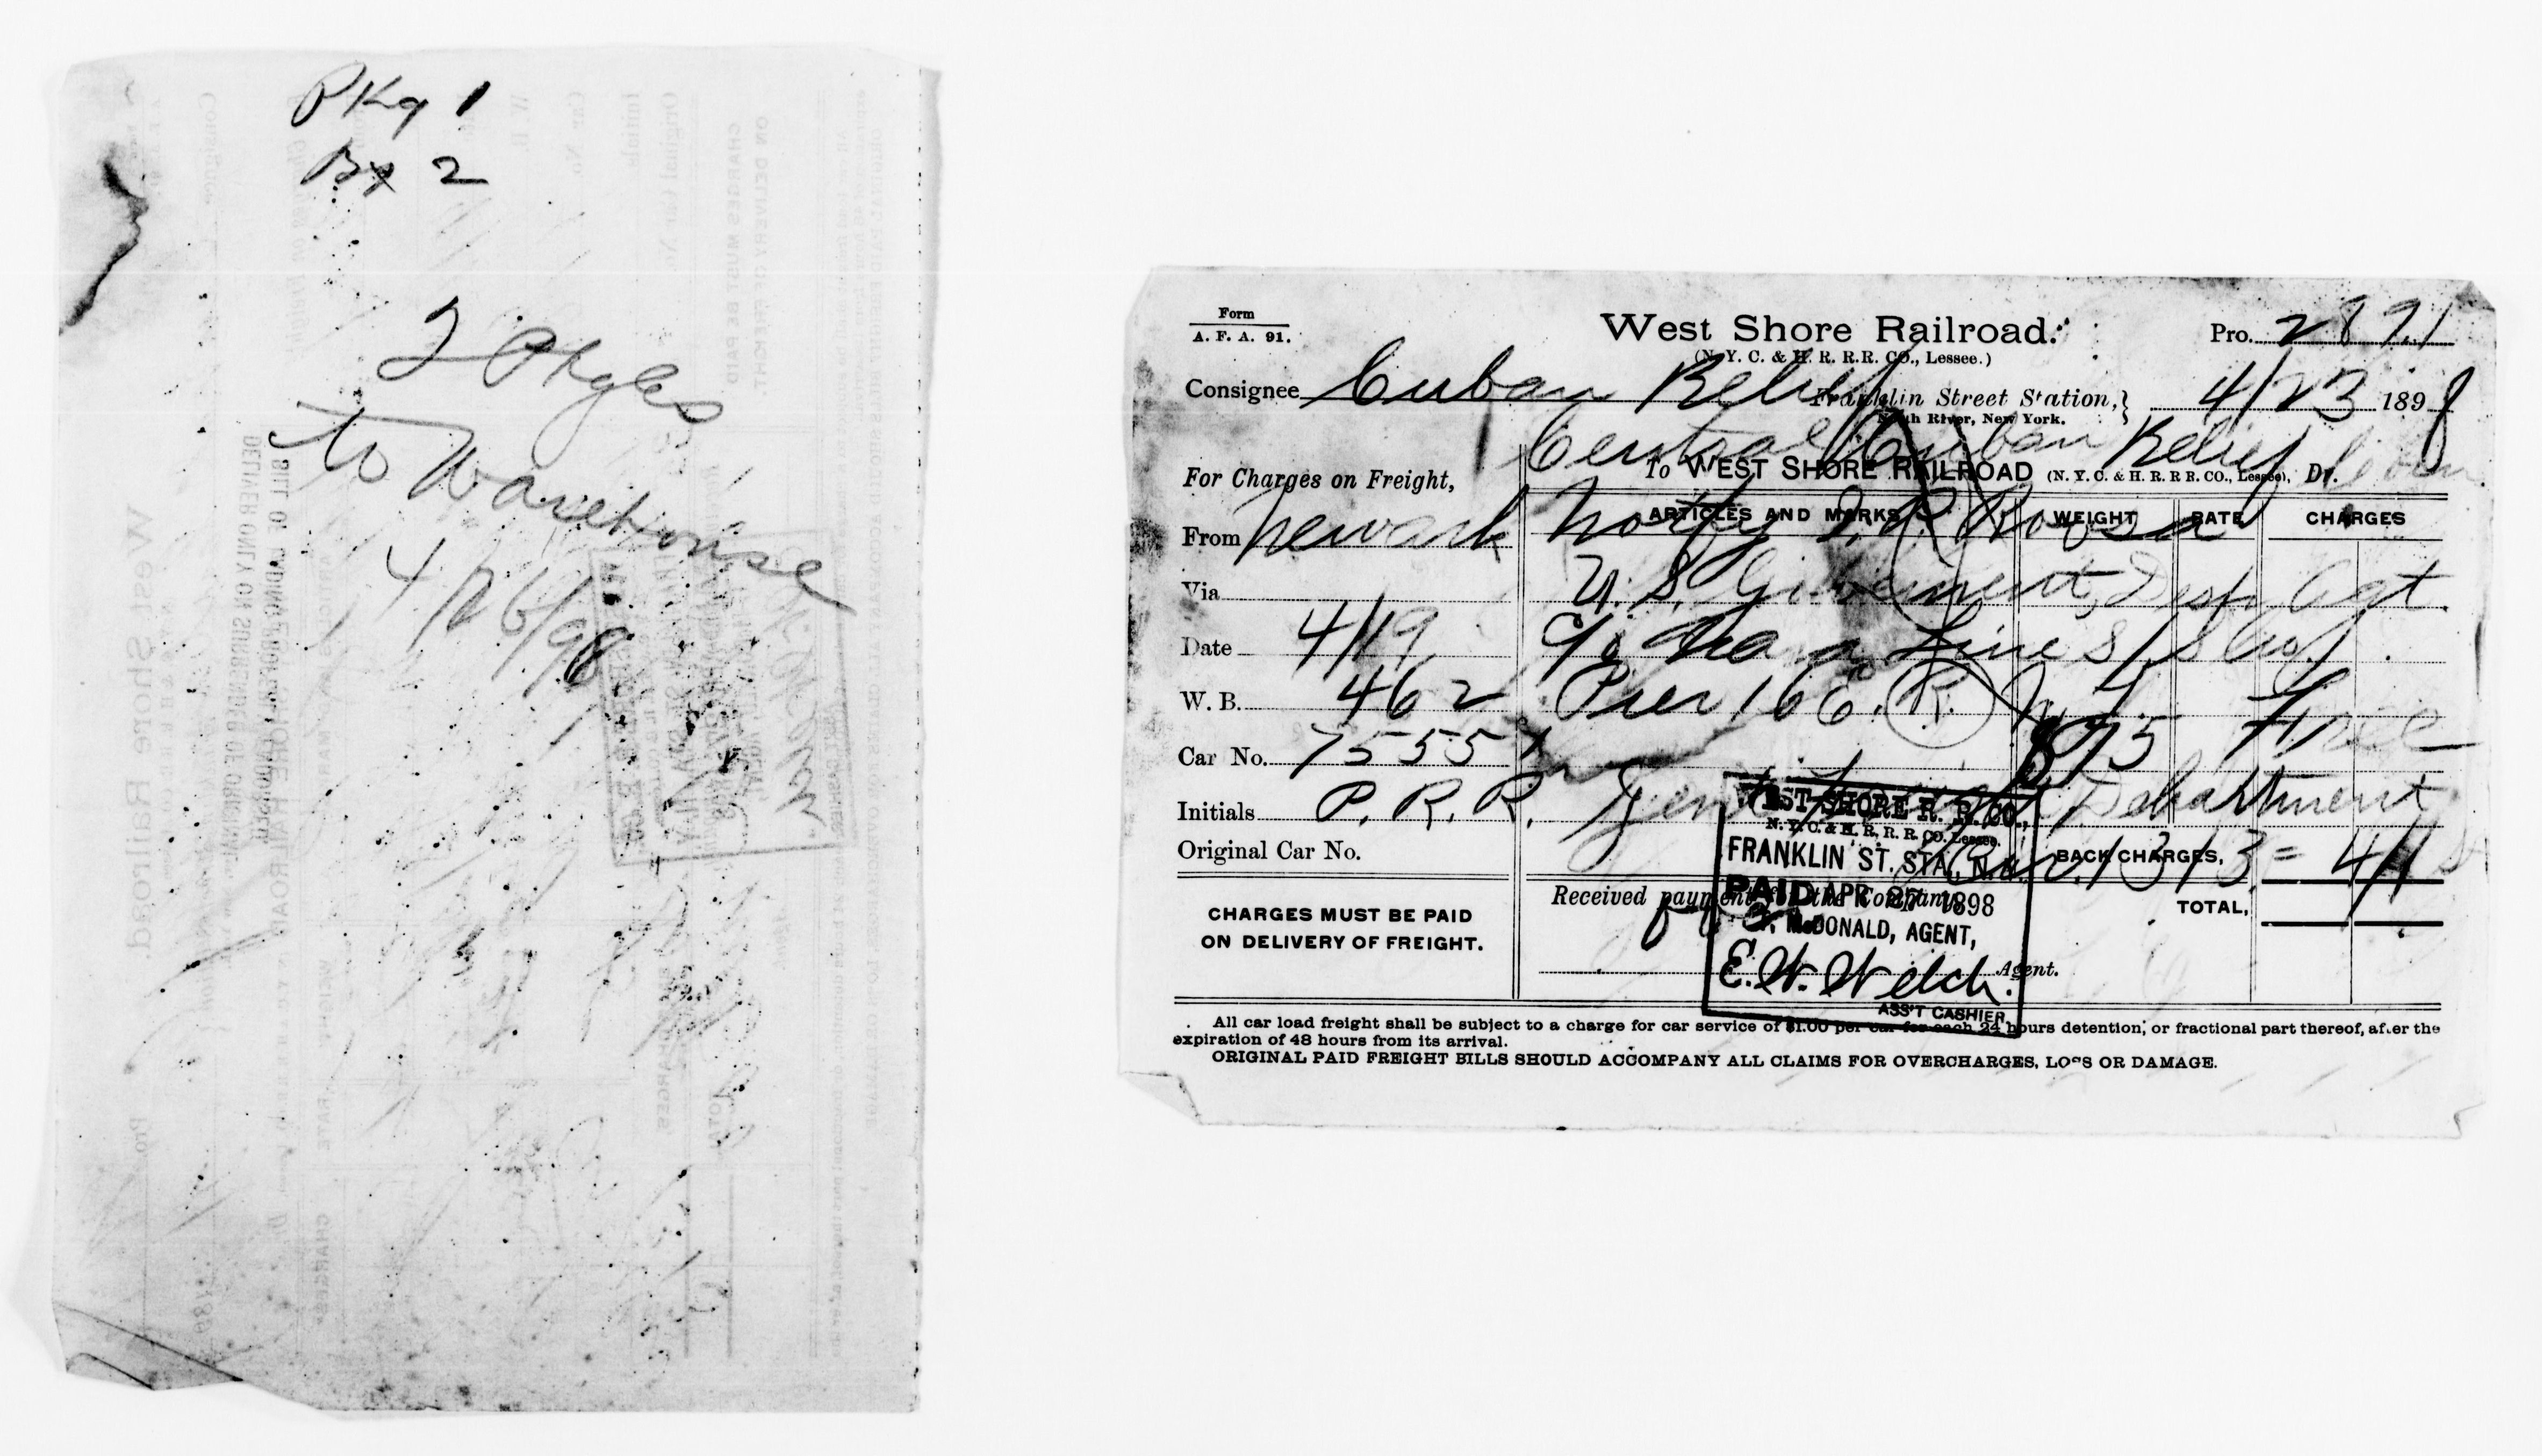 Pkg 1
Bx 2
2 Pkgs
to Warehouse
4/26/98
Form
A. F. A. 91.
West Shore Railroad.
(N. Y. C. & H. R. R.R. CO., Lessee.)
Pro. 2871
Consignee Cuban Relief
Franklin Street Station,
North River, New York.
4/23 1898
Central Cuban Relief
For Charges on Freight,
To WEST SHORE RAILROAD (N. Y. C. & H. R. R R. CO., Lessee), Dr.
ARTICLES AND MARKS
WEIGHT
RATE
CHARGES
From Newark
Notify
Via
U. S. Government, Desp. Agt.
Date 4/19
Line S/S Co.
W. B. 462
Pier 16 E. R. N. Y.
Car No. 7555
875 Free
Initials P. R. R.
Department
Original Car No.
BACK CHARGES,
1313 =
CHARGES MUST BE PAID
ON DELIVERY OF FREIGHT.
Received payment for the Company,
TOTAL,
Agent.
WEST SHORE R. R. CO.,
N. Y. C. & H. R. R. R. CO. Lessee.
FRANKLIN ST. STA., N.R.
PAID APR 27 1898
McDONALD, AGENT,
E. W. Welch.
ASS'T CASHIER.
All car load freight shall be subject to a charge for car service of $1.00 per car for each 24 hours detention, or fractional part thereof, after the
expiration of 48 hours from its arrival.
ORIGINAL PAID FREIGHT BILLS SHOULD ACCOMPANY ALL CLAIMS FOR OVERCHARGES, LOSS OR DAMAGE.